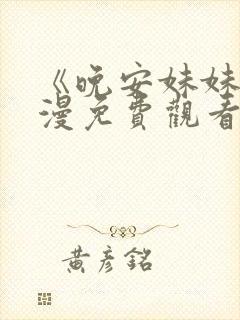 《晚安妹妹
漫免費觀看
黃彥銘